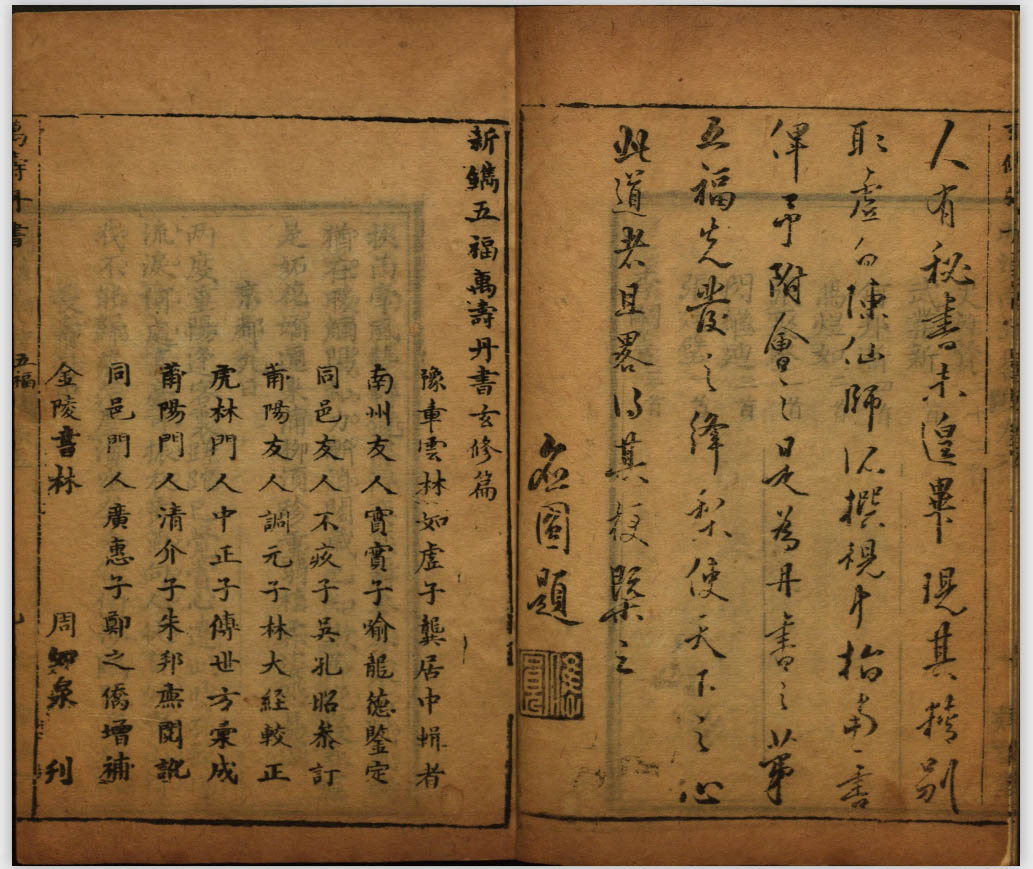 人有秘書未遑畢現其精別
取虛白陳仙師所撰視片指南一書
俾命附會之是為丹書之第
五福先發之絳梨使天下之心
此道者且畧得其梗槩云
在圓題
新鐫五福萬壽丹書玄修篇
豫章雲林如虛子龔居中輯著
南州友人賓賓子喻龍德鑒定
同邑友人不孩子吳孔昭叅訂
莆陽友人調元子林大經較正
虎林門人中正子傅世方彙成
莆陽門人清介子朱邦廉閱訛
同邑門人廣惠子鄭之僑增補
金陵書林 周如泉 刊
萬壽丹書
五福